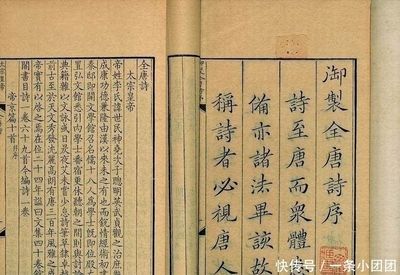 御製全唐詩序
詩至唐而眾體
備亦諸法畢該故
稱詩者必視唐人
全唐詩
太宗皇帝
帝姓李氏諱世民神堯次子聰明英武貞觀之治庶
成康功德兼隆由漢以來未之有也而銳情經術
秦邸即開文學館召名儒十八人為學士既即位殿
置弘文館悉引內學士番宿更休聽朝之間則與討
典籍雜以文詠或日昃夜艾未嘗少怠詩筆草隸卓
前古至於天文秀發沈麗高朗有唐三百年風雅之
帝實有以啟之焉在位二十四年諡曰文集四十卷
閣書目詩一卷六十九首今編詩一卷
帝京篇十首
快传号/一条小团团